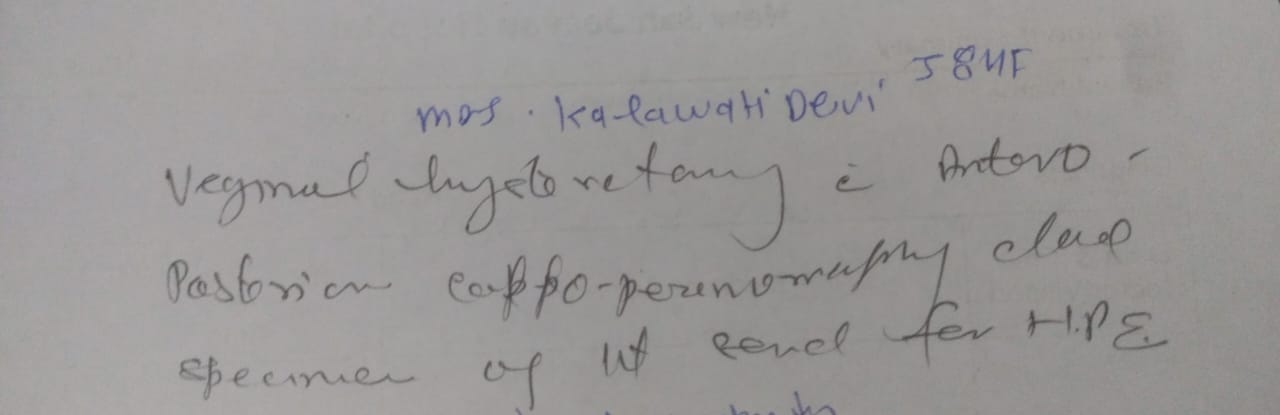 mos. Kalawati Devi 58YF
Veginal hysteretomy c̄ Antero-
Posterior colppo-perenorraphy
specimen of Ut send for H.P.E